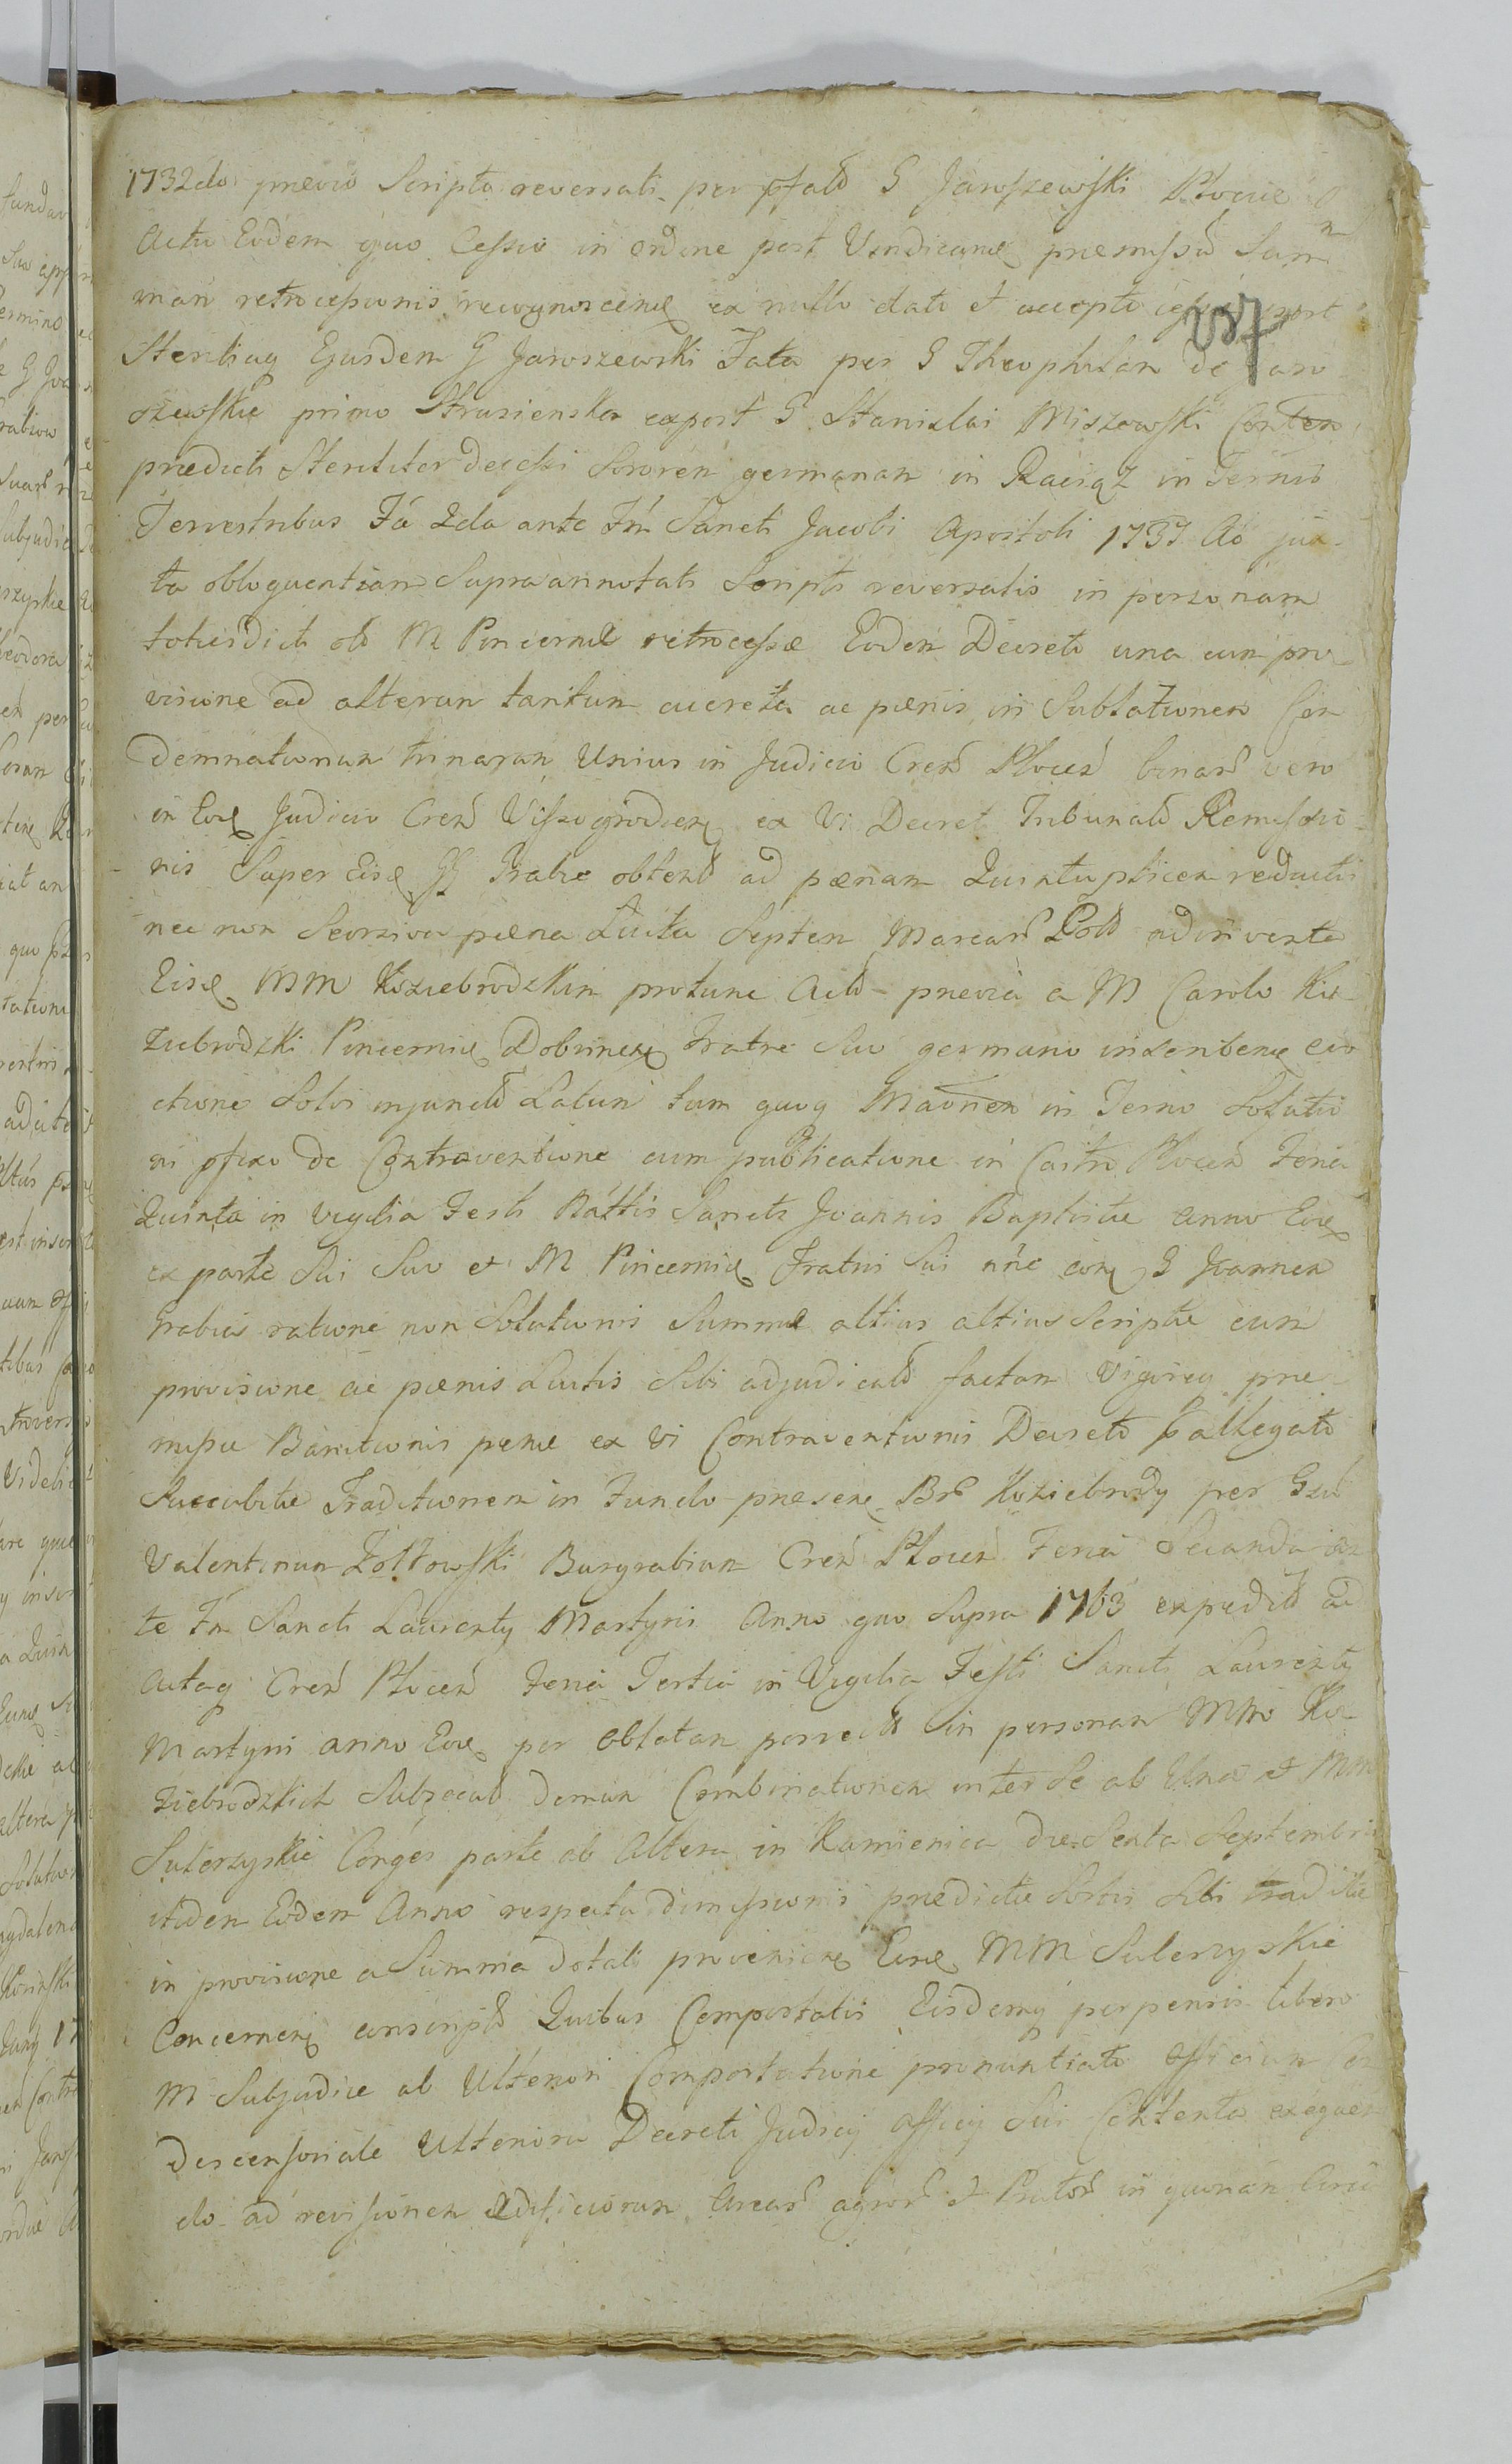 1732do prævio Scripto reversali per pſatū G Jaroszewſki Plociæ
Actu Eodem quo Ceſsio in ordine post Vendicanę præmiſsū Sum
man retroceſsionis recognoscenę ex nullo dato et accepto post
Sterilią Ejusdem G Jaroszewski Fata per G Theophilan de Jaro
szewſkie primo Strusienska expost G Stanislai Miszewſki Conten
prædicti Steriliter deceſsi Sororen germanan in Raciąz in Ternis
Terrestribus Fá 2da ante Fm̄ Sancti Jacobi Apostoli 1737 Ao jux
ta obloquentian Supra annotati Scripti reversalis in personam
totiesdicti oli M Pincernæ retroceſsæ Eoden Decreto una cun pro
visione ad alterun tantun accreta ac pænis in Sublationen Con
demnationun trinarun Unius in Judicio Cren̄ Plocen̄ binar̄ vero
in Eoę Judicio Cren̄ Viſsogrodienę ex Vi Decret Tribunalū Remiſsio
nis Super Eisę GG Grabie obtenū ad pænam Quintuplicen reducti
nec non Seorsiva pæna Luita Septen Marcar̄ Polō adinventa
Eisę MM Koziebrodzkin protunc Actō prævia a M Carolo Ko
ziebrodzki Pincernię Dobrinenę Fratre Suo germano inscribenę evi
ctione Solvi injunctō Latun tum quoą Maōnen in Terno Solutio
ni pfixo de Contraventione cum publicatione in Castro Plocen̄ Feria
Quinta in Vigilia Festi Nāttis Sancti Joannis Baptistæ Anno Eoę
ex parte Sui Suo et M Pincernię Fratris Sui nnē conę G Joannen
Grabie ratione non Solutionis Summæ altius altius Scriptæ cun
provisione ac pænis Luitis Sibi adjudicatō factan Vigoreą præ
miſsæ Banitionis pænæ ex Vi Contraventionis Decreto pallegato
Succubitæ Traditionem in Fundo præsenę Br̄ Koziebrody per Gsū
Valentinun Zołtowſki Burgrabiun Cren̄ Plocen̄ Feria Secunda an
te Fm̄ Sancti Laurenty Martyris Anno quo Supra 1763 expeditō ad
Actaą Cren̄ Plocen̄ Feria Tertia in Vigilia Feſti Sancti Laurenty
Martyris anno Eoę per Oblatan porrectō in personan MM Ko
ziebrodzkich Subsecutō deman Combinationen inter Se ab Una et MM
Sulerzyskie Conges parte ab Altera in Kamienica die Sexta Septembris
itiden Eodem Anno respectu dimiſsionis prædictæ Sortis Sibi traditæ
in provisione a Summa dotali provenienę Eisę MM Sulerzyskie
Concernenę conscriptō Quibus Comportatis Eisdemą perpensis libero
M Subjudice ab Ulteriori Comportatione pronuntiato Officiun Con
descensoriale Ulteriora Decreti Judicij Officij Sui Contenta exequen
do ad reviſionen Ædificiorun Arear̄ agror̄ et Prator̄ in quoran